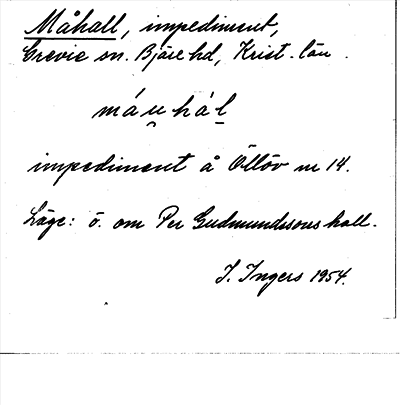 Måhall, impediment,
Grevie sn. Bjäre hd, Krist. län.
máu̯hál̲
impediment å Öllöv nr 14.
Läge: ö. om Per Gudmundsons hall.
I. Ingers 1954.